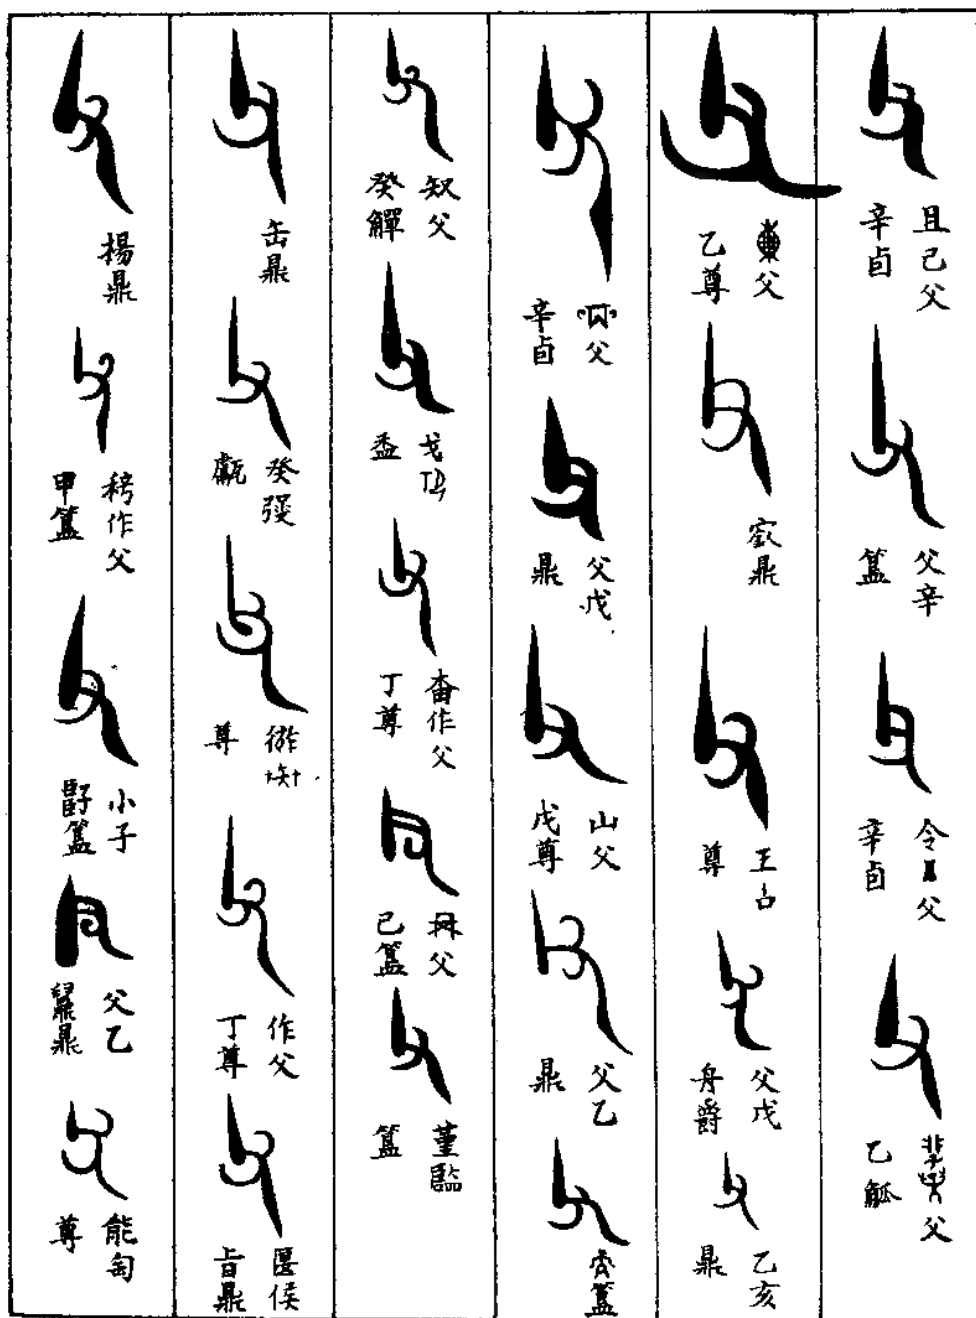 且己父
辛卣
父辛
簋
令 父
辛卣
父
乙觚
父
乙尊
鼎
王占
尊
父戊
舟爵
乙亥
鼎
父
辛卣
父戊
鼎
山父
戊尊
父乙
鼎
簋
父
癸觶
戈
盉
作父
丁尊
冉父
己簋
堇臨
簋
缶鼎
癸
甗
尊
作父
丁尊
匽侯
旨鼎
揚鼎
作父
甲簋
小子
簋
父乙
鼎
能匋
尊